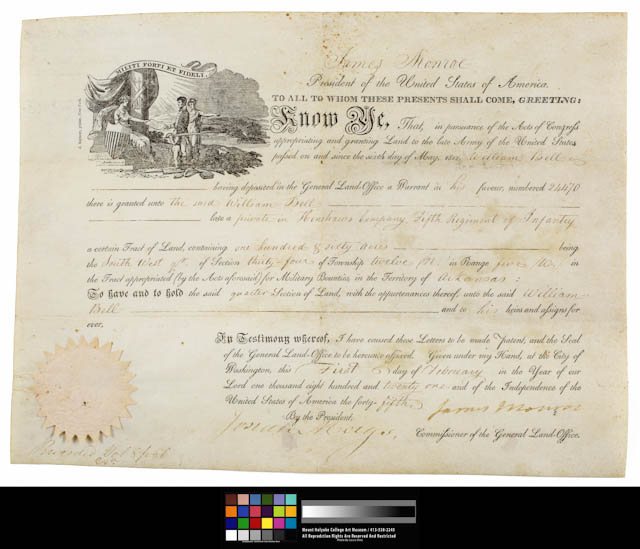 MILITI FORTI ET FIDELI.
James Monroe
President of the United States of America.
TO ALL TO WHOM THESE PRESENTS SHALL COME, GREETING:
Know Ye, That, in pursuance of the Acts of Congress
appropriating and granting Land to the late Army of the United States
passed on and since the sixth day of May, 1812, William Bell
having deposited in the General Land-Office a Warrant in his favour, numbered 24470
there is granted unto the said William Bell
late a private in Henshaws Company, Fifth Regiment of Infantry
a certain Tract of Land, containing one hundred & sixty acres being
the South West qr. of Section thirty-four of Township twelve N. in Range five W. in
the Tract appropriated (by the Acts aforesaid) for Military Bounties, in the Territory of Arkansas:
To have and to hold the said quarter Section of Land, with the appurtenances thereof, unto the said William
Bell and to his heirs and assigns for
ever.
In Testimony whereof, I have caused these Letters to be made Patent, and the Seal
of the General Land-Office to be hereunto affixed. Given under my Hand, at the City of
Washington, this First day of February in the Year of our
Lord one thousand eight hundred and twenty one and of the Independence of the
United States of America the forty-fifth.
James Monroe
By the President,
Josiah Meigs, Commissioner of the General Land-Office.
Recorded Vol 8
Mount Holyoke College Art Museum / 413-538-2245
All Reproduction Rights Are Reserved And Restricted